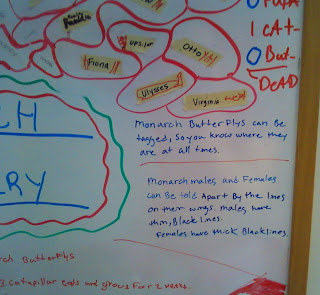 Pupa
1 CAt-
But-
DeAD
Upsilon
Otto
Fiona
Ulysses
Virginia
Monarch ButterFlys can Be
tagged, So you know where they
are at all times.
Monarch males and Females
can Be told Apart By the lines
on their wings. males have
thin, Black lines.
Females have thick Black lines.
CH
RY
rch ButterFlys
3 catapillar eats and grows For 2 weeks.